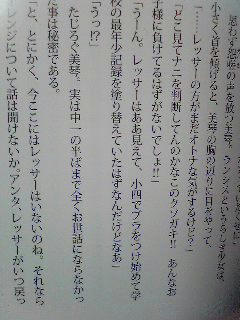 思わず怨嗟の声を放つ美琴。ランシスというらしき少女は、
小さく首を傾げると、美琴の胸の辺りに目をやって、
「……レッサーの方がまだオトナな気がするけど？」
「どこ見てナニを判断してんのかなこのクソガキ!!　あんなお
子様に負けてるはずがないでしょ!!」
「うーん。レッサーはああ見えて、小四でブラをつけ始めて学
校の最年少記録を塗り替えていたはずなんだけどなあ」
「うっ!?」
たじろぐ美琴。実は中一の半ばまで全くお世話にならなかっ
た事は秘密である。
「と、とにかく、今ここにはレッサーはいないのね。それなら
レンジについて話は聞けないか。アンタ、レッサーがいつ戻っ